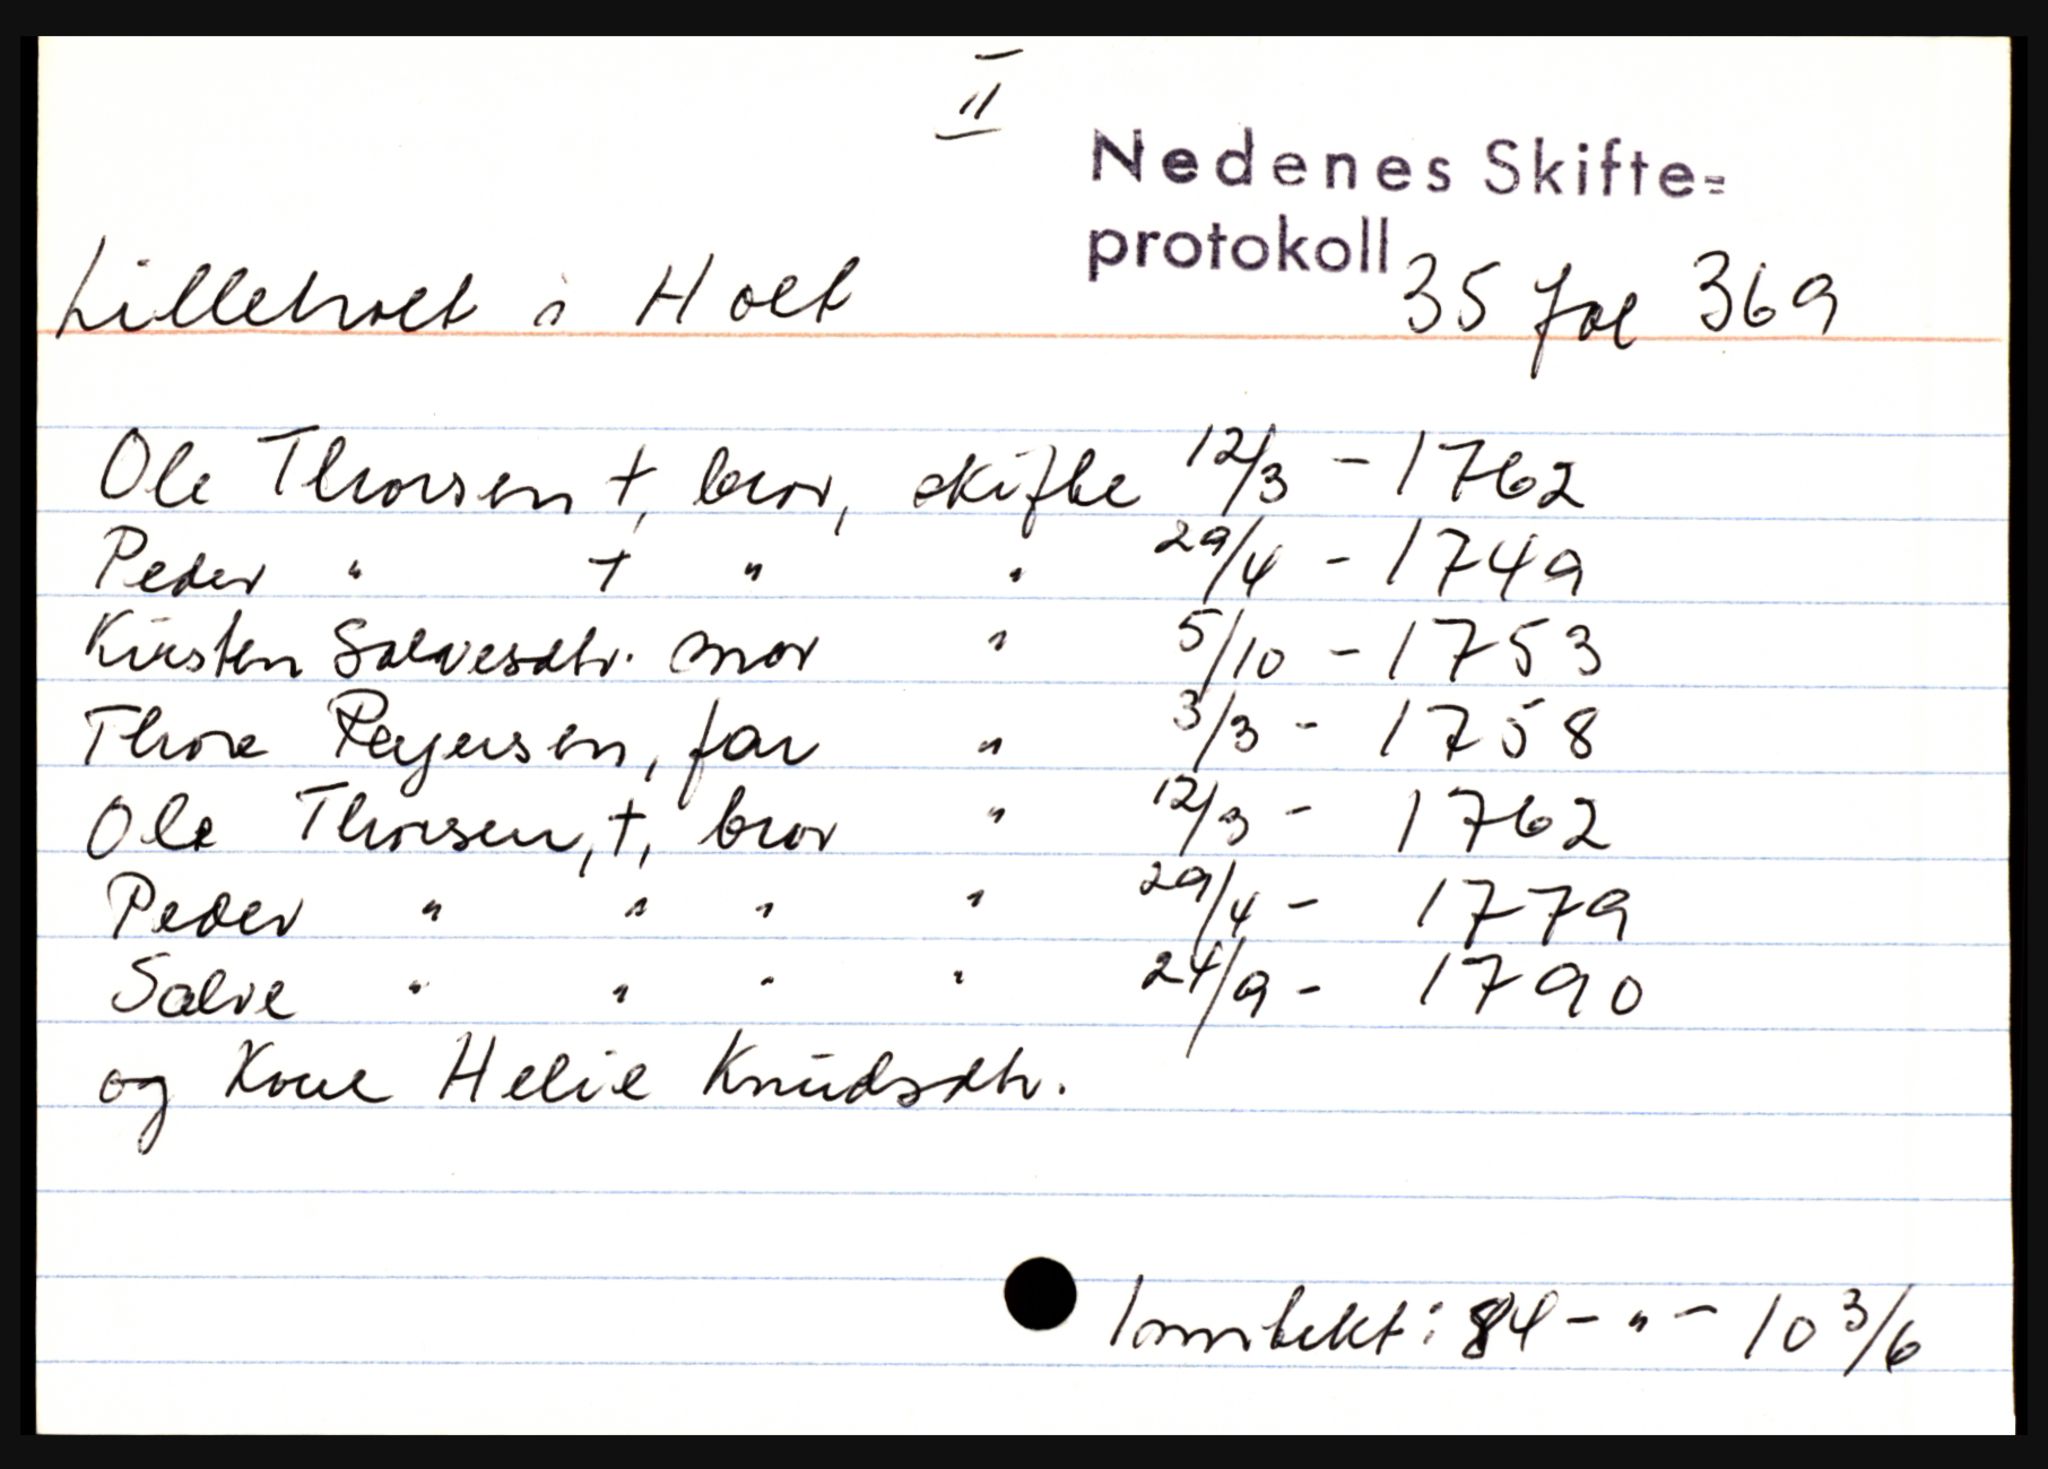 II
Nedenes Skifte=
protokoll 35 fol 369
Lilleholt i Holt
Ole Thorsen †, bror, skifte 12/3 - 1762
Peder " † " " 29/4 - 1749
Kirsten Salvesdtr. mor " 5/10 - 1753
Thore Reyersen, far " 3/3 - 1758
Ole Thorsen, †, bror " 12/3 - 1762
Peder " " " " 29/4 - 1779
Salve " " " " 24/9 - 1790
og Kone Helie Knudsdtr.
Inntekt: 84 - " - 10 3/6